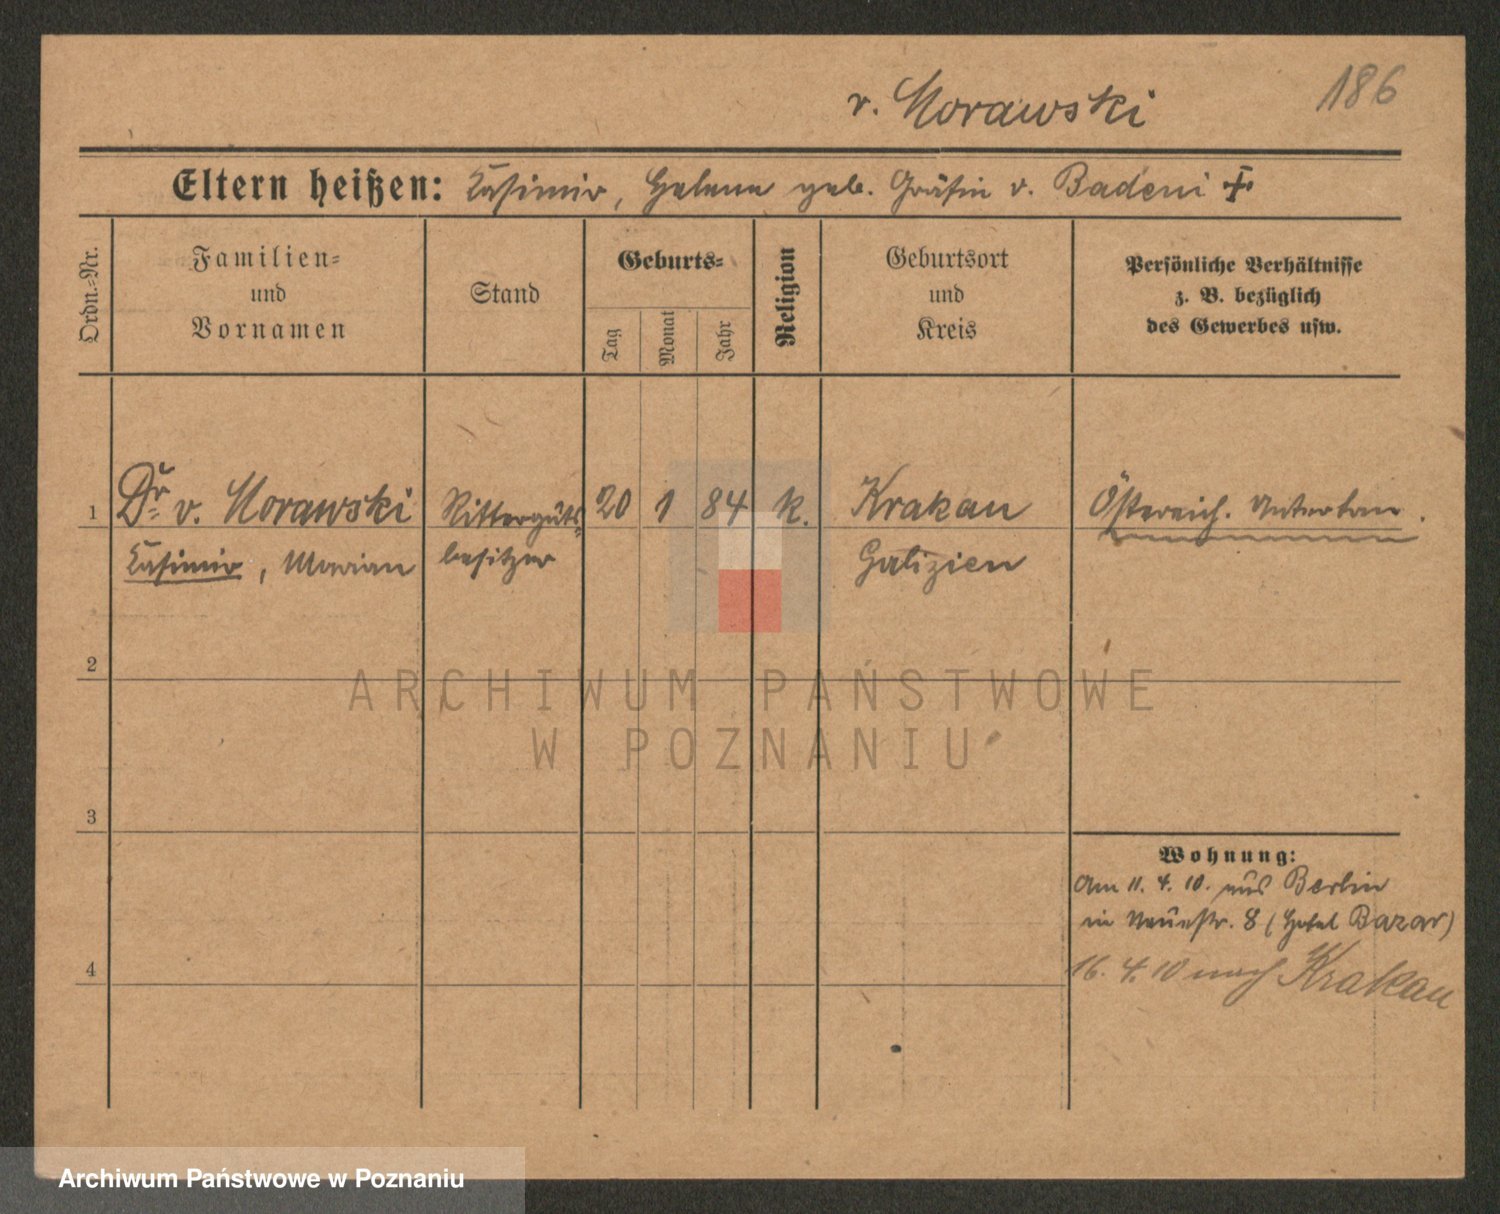 v. Morawski
186
Eltern heißen: Kasimir, Helene geb. Gräfin v. Badeni +
Ordn.-Nr.
Familien-
und
Vornamen
Stand
Geburts-
Tag
Monat
Jahr
Religion
Geburtsort
und
Kreis
Persönliche Verhältnisse
z. B. bezüglich
des Gewerbes usw.
1
Dr v. Morawski
Kasimir, Marian
Ritterguts-
besitzer
20
1
84
k.
Krakau
Galizien
Österreich. Untertan.
2
3
4
Wohnung:
Am 11. 4. 10. aus Berlin
in Neuestr. 8 (Hotel Bazar)
16. 4. 10 nach Krakau
ARCHIWUM PAŃSTWOWE
W POZNANIU
Archiwum Państwowe w Poznaniu